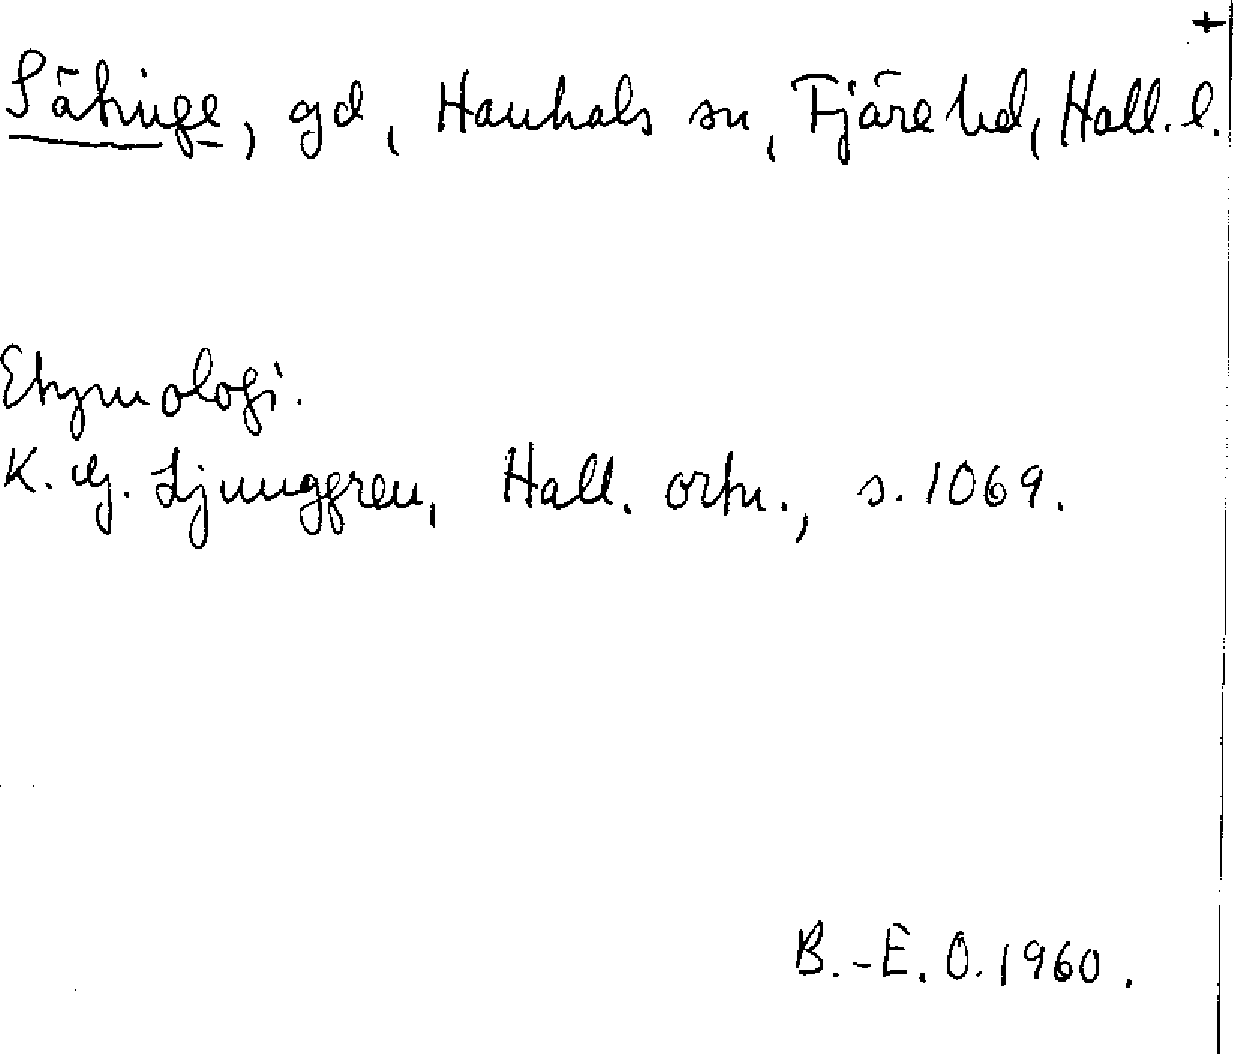 Sätinge, gd, Hanhals sn, Fjäre hd, Hall. l.
Etymologi.
K. G. Ljunggren, Hall. ortn., s. 1069.
B.-E. O. 1960.